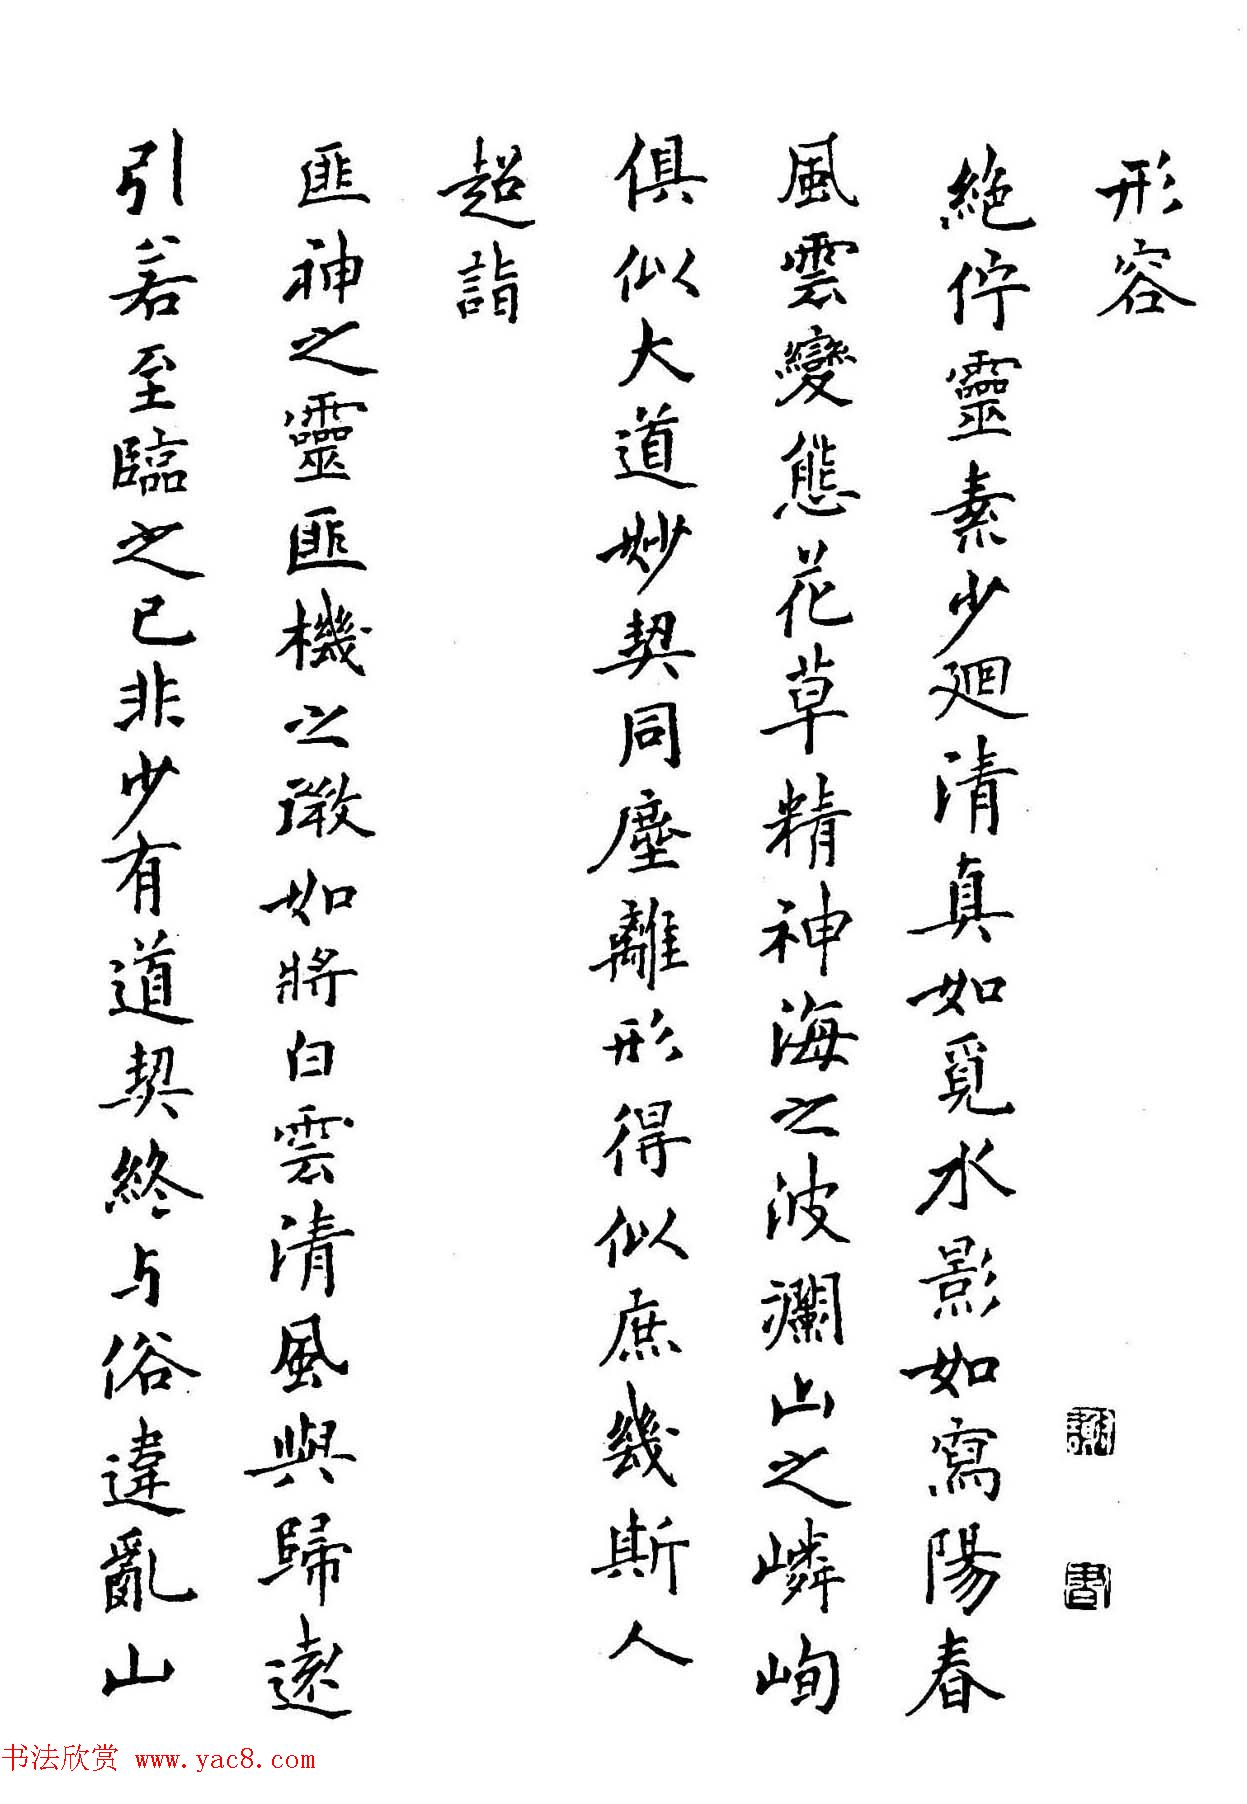 形容
絕佇靈素少廻清真如覓水影如寫陽春
風雲變態花草精神海之波瀾山之嶙峋
俱似大道妙契同塵離形得似庶幾斯人
超詣
匪神之靈匪機之微如將白雲清風與歸遠
引若至臨之已非少有道契終与俗違亂山
书法欣赏 www.yac8.com